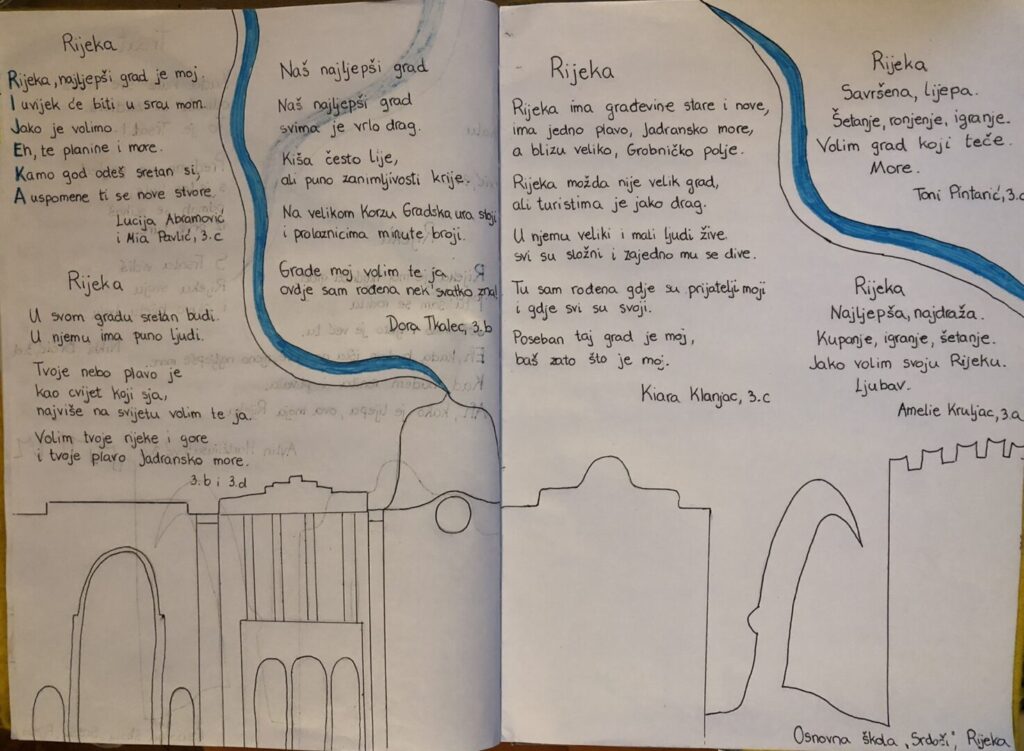 Rijeka
Rijeka, najljepši grad je moj
I uvijek će biti u srcu mom.
Jako je volimo
Eh, te planine i more.
Kamo god odeš sretan si,
A uspomene ti se nove stvore.
Lucija Abramović
i Mia Pavlić, 3.c
Rijeka
U svom gradu sretan budi.
U njemu ima puno ljudi.
Tvoje nebo plavo je
kao cvijet koji sja,
najviše na svijetu volim te ja.
Volim tvoje rijeke i gore
i tvoje plavo Jadransko more.
3.b i 3.d
Naš najljepši grad
Naš najljepši grad
svima je vrlo drag.
Kiša često lije,
ali puno zanimljivosti krije.
Na velikom Korzu Gradska ura stoji
i prolaznicima minute broji.
Grade moj volim te ja
ovdje sam rođena nek' svatko zna!
Dora Tkalec, 3.b
Rijeka
Rijeka ima građevine stare i nove,
ima jedno plavo, Jadransko more,
a blizu veliko, Grobničko polje.
Rijeka možda nije velik grad,
ali turistima je jako drag.
U njemu veliki i mali ljudi žive
svi su složni i zajedno mu se dive.
Tu sam rođena gdje su prijatelji moji
i gdje svi su svoji.
Poseban taj grad je moj,
baš zato što je moj.
Kiara Klanjac, 3.c
Rijeka
Savršena, lijepa.
Šetanje, ronjenje, igranje.
Volim grad koji teče.
More.
Toni Pintarić, 3.c
Rijeka
Najljepša, najdraža.
Kupanje, igranje, šetanje.
Jako volim svoju Rijeku.
Ljubav.
Amelie Kruljac, 3.a
Osnovna škola „Srdoči" Rijeka